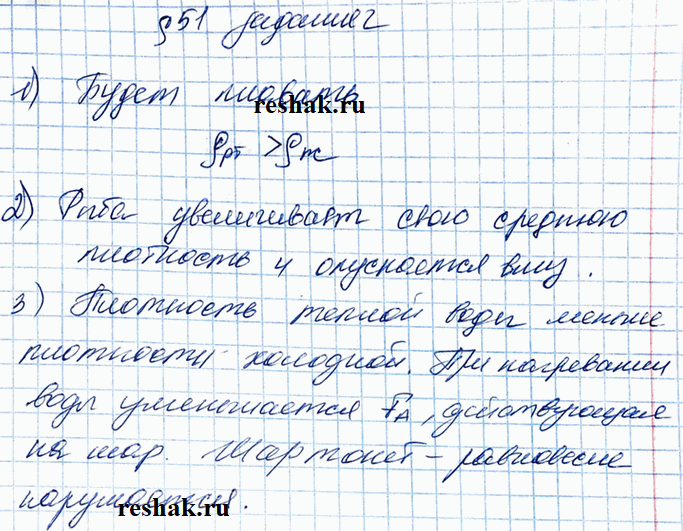 §51 задания
1) Будет плавать
reshak.ru
ρрт > ρж
2) Рыба увеличивает свою среднюю
плотность и опускается вниз.
3) Плотность теплой воды меньше
плотности холодной. При нагревании
воды уменьшается FА, действующая
на шар. Шар тонет – равновесие
нарушается.
reshak.ru